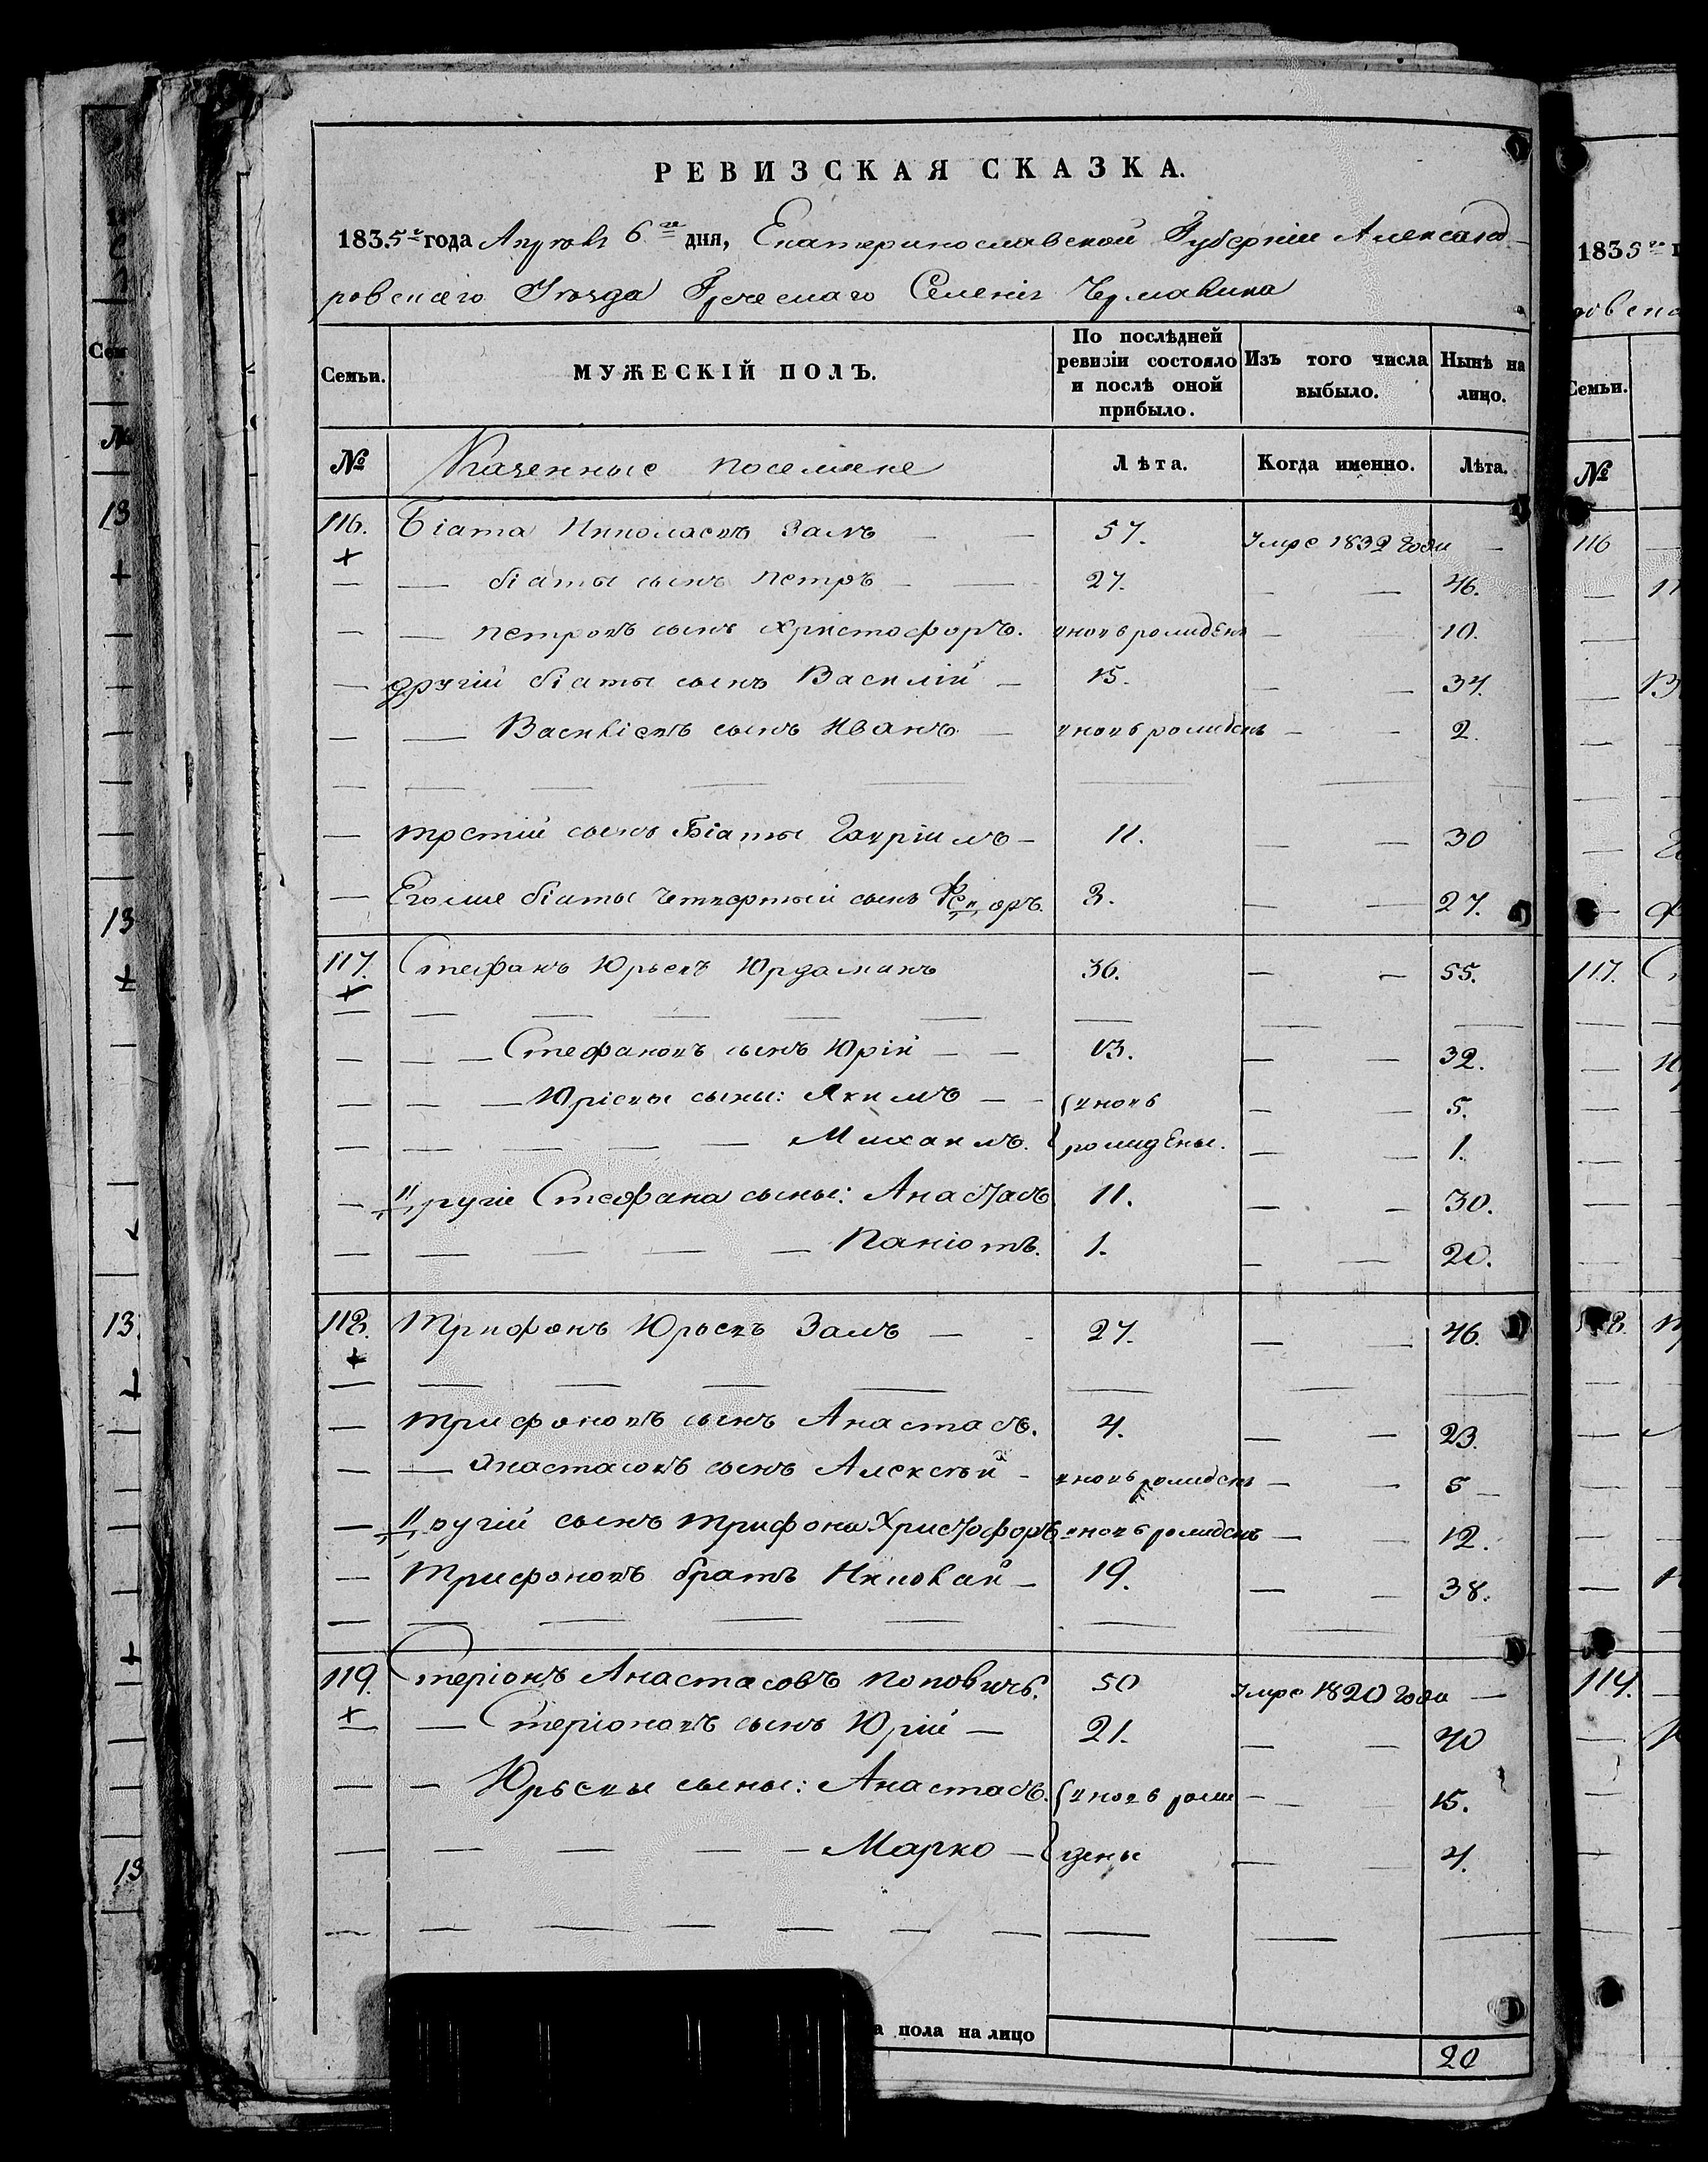 РЕВИЗСКАЯ СКАЗКА.
1835го года Апреля 6го дня, Екатеринославской Губернии Александ-
ровскаго Уезда Греческаго Селенія Чермалика
Семьи. МУЖЕСКІЙ ПОЛЪ. По послѣдней ревизіи состояло и послѣ оной прибыло. Изъ того числа выбыло. Нынѣ на лицо.
№ Казенные поселяне Лѣта. Когда именно. Лѣта.
116. Біата Николаевъ Залъ — — 57. Умре 1832 года —
— — біаты сынъ петръ — — 27. — — 46.
— — петровъ сынъ христофоръ. вновь рожденъ — 10.
— другій біаты сынъ Василій — 15. — — 34.
— — Васильевъ сынъ Иванъ — вновь рожденъ — — 2.
— третій сынъ Біаты Гавріилъ — 11. — — 30
— Егоже біаты четвертый сынъ Федоръ. 3. — — 27.
117. Стефанъ Юрьевъ Юрдаманъ 36. — — 55.
— — — Стефановъ сынъ Юрій — — 13. — — 32.
— — — Юріевы сыны: Якимъ — — вновь — — 5.
— — — — — Михаилъ. рождены. — — 1.
— другіе Стефана сыны: Анастасъ 11. — — 30.
— — — — — Паніотъ. 1. — — 20.
118. Трифонъ Юрьевъ Залъ — - 27. — — 46.
— трифоновъ сынъ Анастасъ. 4. — — 23.
— — Анастасовъ сынъ Алексѣй - вновь рожденъ — — 5 —
— другій сынъ трифона Христофоръ вновь рожденъ — — 12.
— Трифоновъ братъ Николай — 19. — — 38.
119. Стеріонъ Анастасовъ поповичъ. 50 Умре 1820 года —
— — Стеріоновъ сынъ Юрій — 21. — — 40
— — Юрьевы сыны: Анастасъ. вновь рож — — 15.
— — — — — Марко — дены — — 4.
а пола на лицо 20
1835го
ровска
Семьи.
№
116
117.
118.
119.
Сем
№
13
13
13
13